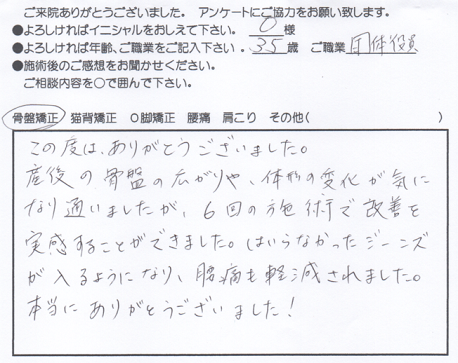 ご来院ありがとうございました。 アンケートにご協力をお願い致します。
●よろしければイニシャルをおしえて下さい。 O 様
●よろしければ年齢、ご職業をご記入下さい。 35 歳 ご職業 団体役員
●施術後のご感想をお聞かせください。
ご相談内容を○で囲んで下さい。
骨盤矯正 猫背矯正 O脚矯正 腰痛 肩こり その他( )
この度は、ありがとうございました。
産後の骨盤の広がりや、体形の変化が気に
なり通いましたが、6回の施術で改善を
実感することができました。はいらなかったジーンズ
が入るようになり、腰痛も軽減されました。
本当にありがとうございました!